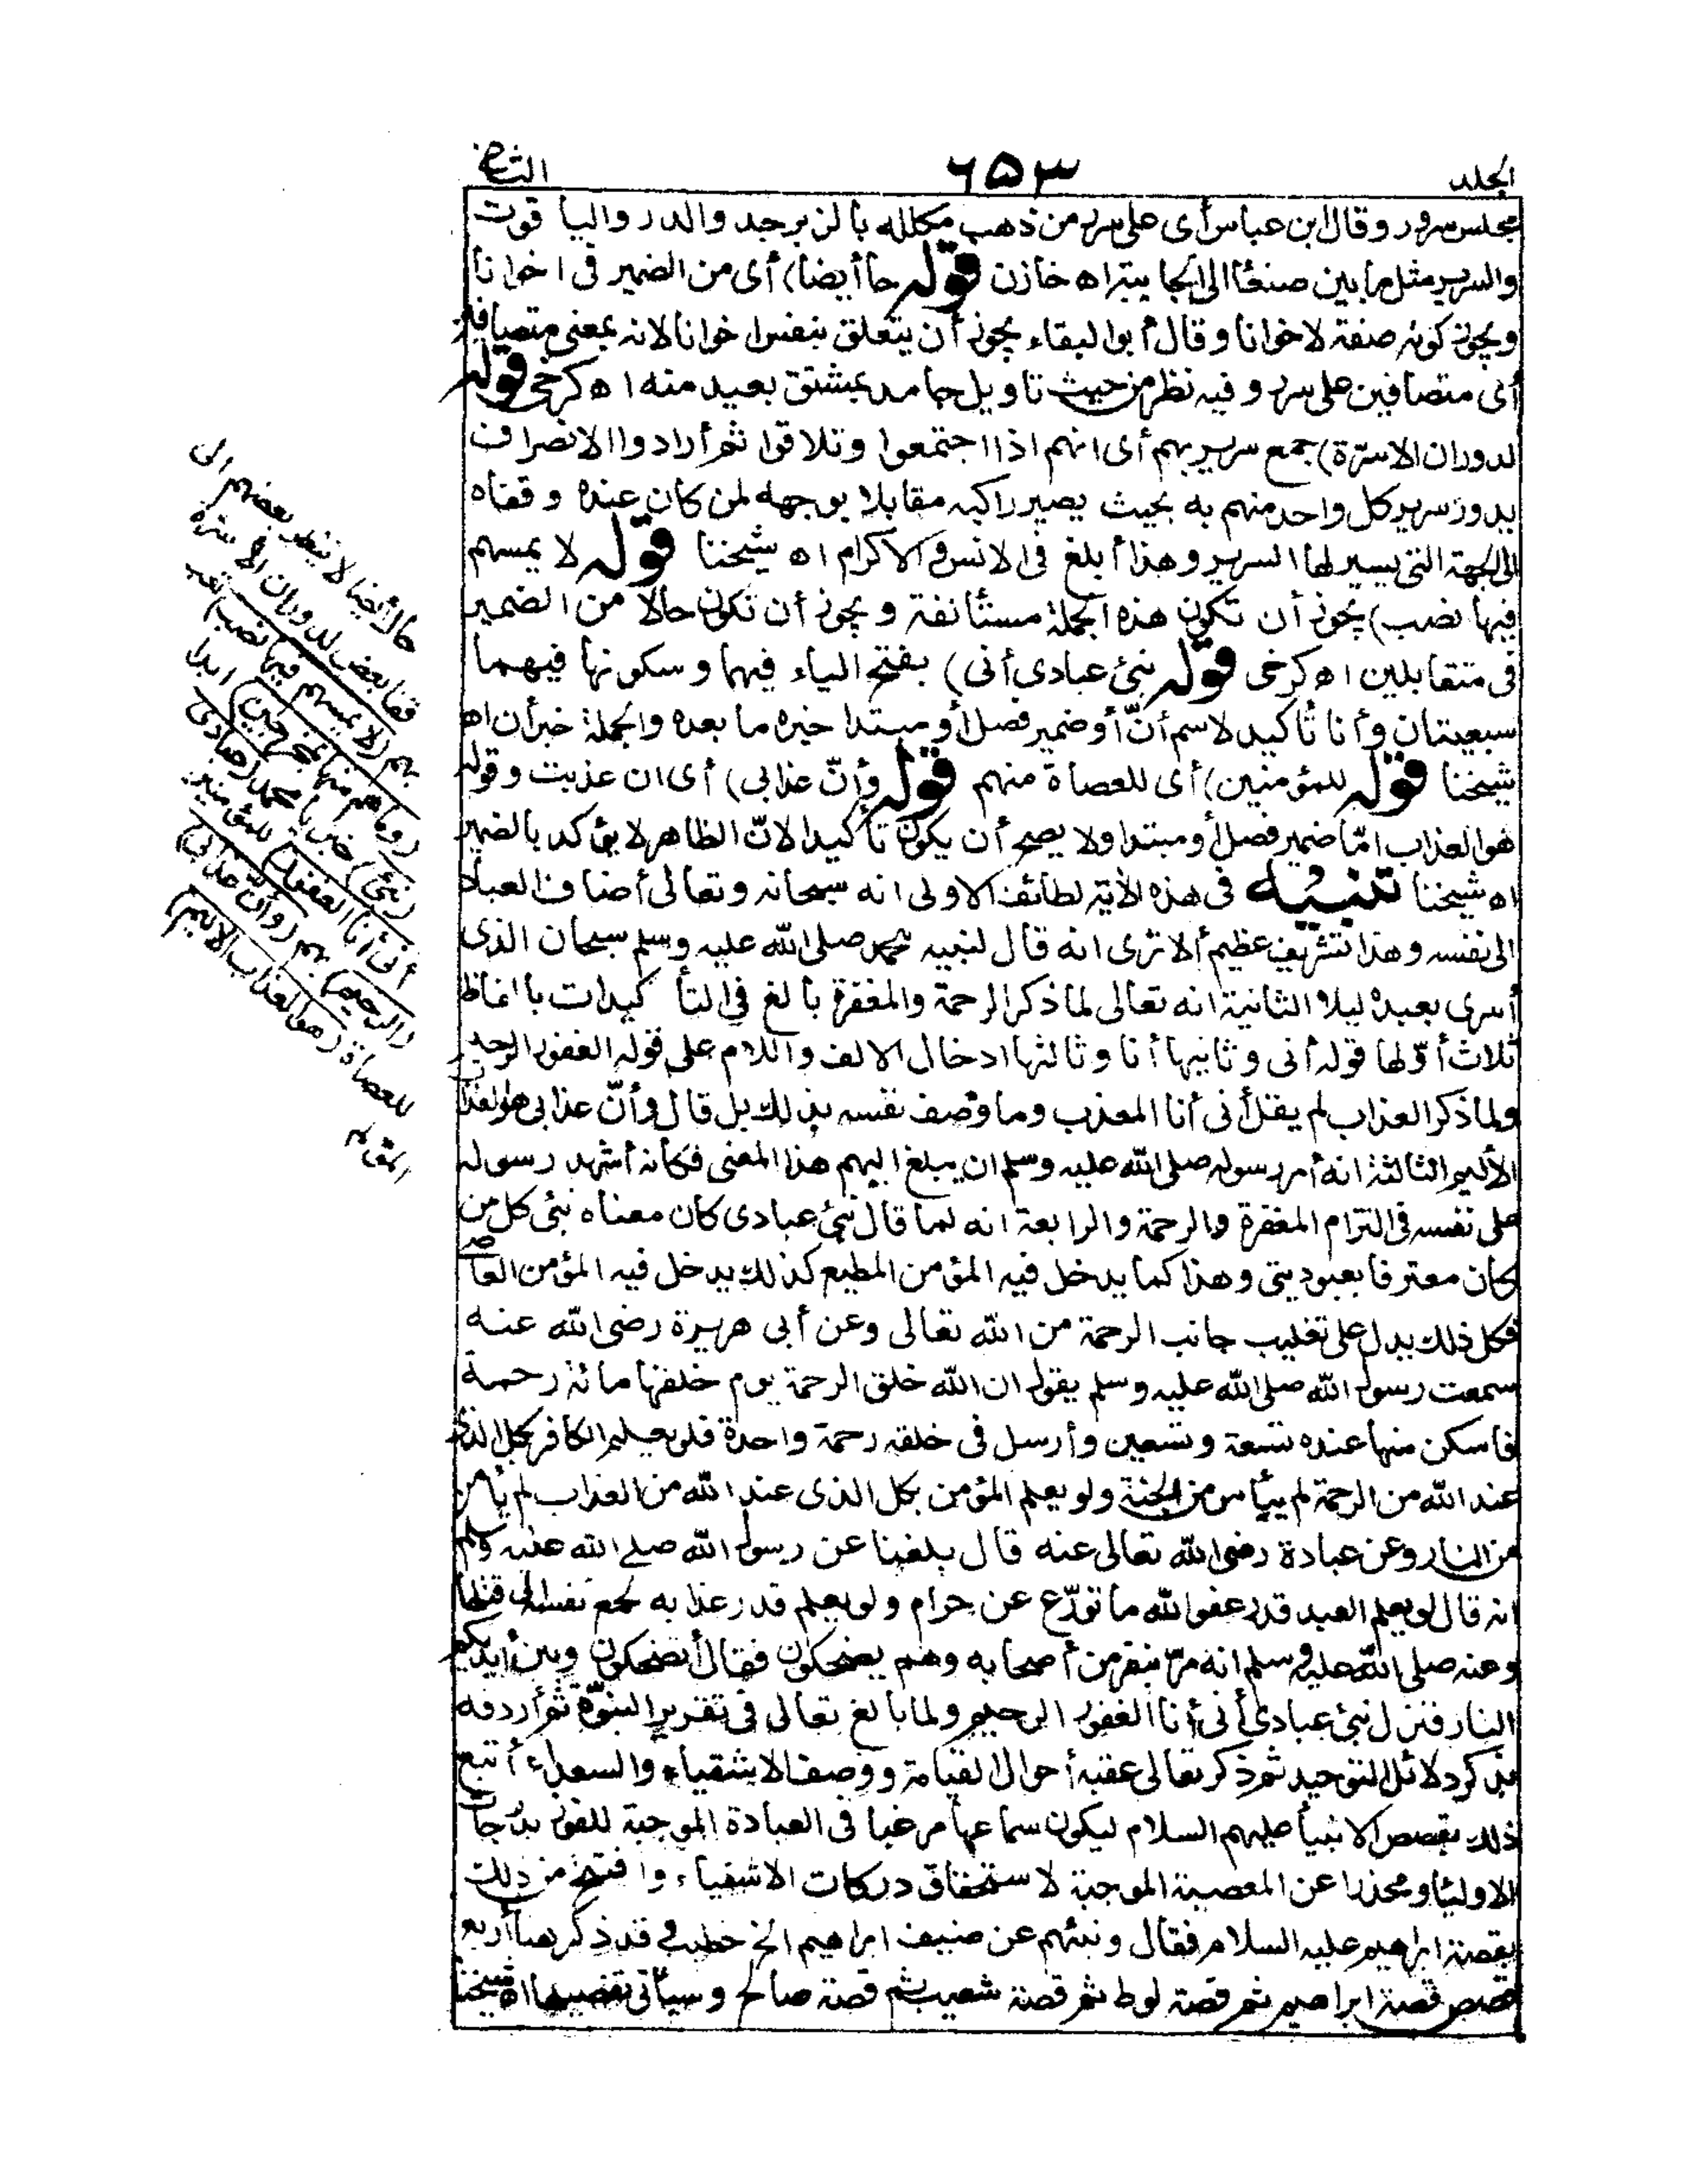 الجلد ٦٥٣ الثانى
مجلس سرور وقال ابن عباس أى على سرر من ذهب مكلله بالزبرجد والدر واليا قوت
والسرير مثل ما بين صنعا الى الجابية اه خازن قوله حا أيضا) أى من الضمير فى اخوانا
ويجوز كونه صفة لاخوانا وقال أبو البقاء يجوز أن يتعلق بنفس اخوانا لانه بمعنى متصافين
أى متصافين على سرر وفيه نظر من حيث تاويل جامد بمشتق بعيد منه اه كرخى قوله
لدوران الاسرّة) جمع سرير بهم أى انهم اذا اجتمعوا وتلاقوا ثم أرادوا الانصراف
يدور سرير كل واحد منهم به بحيث يصير راكبه مقابلا بوجهه لمن كان عنده وقفاه
الى الجهة التى يسير لها السرير وهذا أبلغ فى الانس والاكرام اه شيخنا قوله لا يمسهم
فيها نصب) يجوز أن تكون هذه الجملة مستأنفة ويجوز أن تكون حالا من الضمير
فى متقابلين اه كرخى قوله نبئ عبادى أنى) بفتح الياء فيهما وسكونها فيهما
سبعيتان وأنا تأكيد لاسم أنّ أو ضمير فصل أو مبتدا خبره ما بعده والجملة خبر أن اه
شيخنا قوله للمؤمنين) أى للعصاة منهم قوله وأنّ عذابى) أى ان عذبت وقوله
هو العذاب امّا ضمير فصل أو مبتدا ولا يصح أن يكون تأكيدا لانّ الظاهر لا يؤكد بالضمير
اه شيخنا تنبيه فى هذه الأية لطائف الاولى انه سبحانه وتعالى أضاف العباد
الى نفسه وهذا تشريف عظيم ألا ترى انه قال لنبيه محمد صلى الله عليه وسلم سبحان الذى
أسرى بعبده ليلا الثانية انه تعالى لما ذكر الرحمة والمغفرة بالغ فى التأ كيدات بالفاظ
ثلاث أوّلها قوله أنى وثانيها أنا وثالثها ادخال الالف واللام على قوله الغفور الرحيم
ولما ذكر العذاب لم يقل أنى أنا المعذب وما وصف نفسه بذلك بل قال وأنّ عذابى هو العذاب
الأليم الثالثة انه أمر رسوله صلى الله عليه وسلم ان يبلغ اليهم هذا المعنى فكأنه أشهد رسوله
على نفسه فى التزام المغفرة والرحمة والرابعة انه لما قال نبئ عبادى كان معناه نبئ كل من
كان معترفا بعبوديتى وهذا كما يدخل فيه المؤمن المطيع كذلك يدخل فيه المؤمن العاصى
فكل ذلك يدل على تغليب جانب الرحمة من الله تعالى وعن أبى هريرة رضى الله عنه
سمعت رسول الله صلى الله عليه وسلم يقول ان الله خلق الرحمة يوم خلقها مائة رحمة
فاسكن منها عنده تسعة وتسعين وأرسل فى خلقه رحمة واحدة فلو يعلم الكافر بكل الذى
عند الله من الرحمة لم ييأس من الجنة ولو يعلم المؤمن بكل الذى عند الله من العذاب لم يأمن
من النار وعن عبادة رضى الله تعالى عنه قال بلغنا عن رسول الله صلى الله عليه وسلم
انه قال لو يعلم العبد قدر عفو الله ما تورّع عن حرام ولو يعلم قدر عذابه لجمع نفسه الى قتلها
وعنه صلى الله عليه وسلم انه مرّ بنفر من أصحابه وهم يضحكون فقال أتضحكون وبين أيديكم
النار فنزل نبئ عبادى أنى أنا الغفور الرحيم ولما بالغ تعالى فى تقرير النبوّة ثم أردفه
بذكر دلائل التوحيد ثم ذكر تعالى عقبه أحوال القيامة ووصف الاشقياء والسعداء أتبع
ذلك بقصص الانبيأ عليهم السلام ليكون سماعها مرغبا فى العبادة الموجبة للفوز بدرجات
الاوليا ومحذرا عن المعصية الموجبة لاستحقاق دركات الاشقياء وافتتح من ذلك
بقصة ابراهيم عليه السلام فقال ونبئهم عن ضيف ابراهيم الخ خطيب وقد ذكر هنا أربع
قصص قصة ابراهيم ثم قصة لوط ثم قصة شعيب ثم قصة صالح وسيأتى تفصيلها اه شيخنا
حال أيضا لا ينظر بعضهم الى
قفا بعض لدوران الأسرة
بهم (لا يمسهم فيها نصب) تعب
(وما هم منها بمخرجين) ابدا
(نبئ) خبر يا محمد (عبادى
أنى أنا الغفور) للمؤمنين
(الرحيم) بهم (وأنّ عذابى)
للعصاة (هو العذاب الاليم)
المؤلم